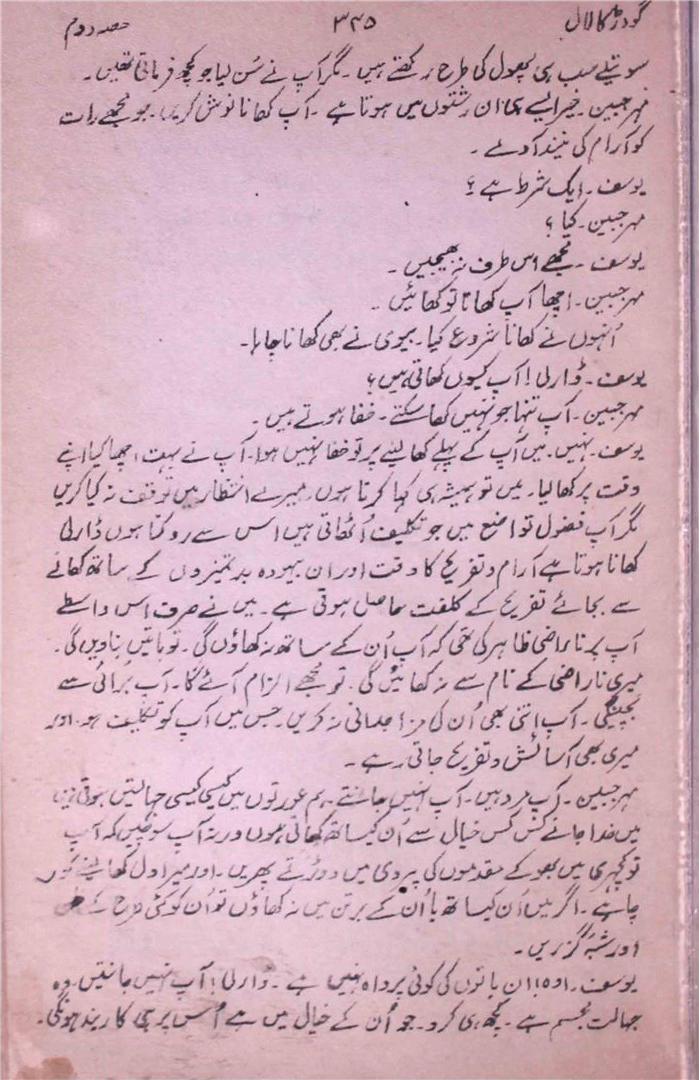 گودڑ کا لال ۳۴۵ حصہ دوم
سوتیلے سب ہی پھول کی طرح رکھتے ہیں۔ مگر آپ نے سُن لیا جو کچھ فرماتی تھیں۔
مہر جبین۔ خیر ایسے ہی ان رشتوں میں ہوتا ہے۔ آپ کھانا نوش کریں۔ جو مجھے رات
کو آرام کی نیند آوے۔
یوسف۔ ایک شرط ہے؟
مہر جبین۔ کیا؟
یوسف۔ مجھے اس طرف نہ بھیجیں۔
مہر جبین۔ اچھا آپ کھانا تو کھائیں۔
اُنہوں نے کھانا شروع کیا۔ بیوی نے بھی کھانا چاہا۔
یوسف۔ ڈارلی! آپ کیوں کھاتی ہیں؟
مہر جبین۔ آپ تنہا جو نہیں کھا سکتے۔ خفا ہوتے ہیں۔
یوسف۔ نہیں۔ میں آپ کے پہلے کھا لینے پر تو خفا نہیں ہوا۔ آپ نے بہت اچھا کیا اپنے
وقت پر کھا لیا۔ میں تو ہمیشہ ہی کہا کرتا ہوں۔ میرے انتظار میں توقف نہ کیا کریں
مگر آپ فضول تواضع میں جو تکلیف اُٹھاتی ہیں اس سے روکتا ہوں ڈارلی
کھانا ہوتا ہے آرام و تفریح کا وقت اور ان بیہودہ بدتمیزوں کے ساتھ کھانے
سے بجائے تفریح کے کلفت حاصل ہوتی ہے۔ میں نے صرف اس واسطے
آپ پر ناراضی ظاہر کی تھی کہ آپ اُن کے ساتھ نہ کھاؤں گی۔ تو باتیں بناویں گی۔
میری ناراضی کے نام سے نہ کھائیں گی۔ تو مجھے الزام آئے گا۔ آپ بُرائی سے
بچینگی۔ آپ اتنی بھی اُن کی مزاجدانی نہ کریں۔ جس میں آپ کو تکلیف ہو۔ اور
میری بھی آسائش و تفریح جاتی رہے۔
مہر جبین۔ آپ مرد ہیں۔ آپ نہیں جانتے۔ ہم عورتوں میں کیسی کیسی جہالتیں ہوتی ہیں
میں خدا جانے کس کس خیال سے اُن کیساتھ کھاتی ہوں ورنہ آپ سوچیں کہ آپ
تو کچہری میں بھوکے مقدموں کی پیروی میں دوڑتے پھریں۔ اور میرا دل کھا لینے کو
چاہے۔ اگر میں اُن کیساتھ یا اُن کے برتن میں نہ کھاؤں تو اُن کو کئی طرح کے
اور شبہ گزریں۔
یوسف۔ اوہ! ان باتوں کی کوئی پرواہ نہیں ہے۔ ڈارلی! آپ نہیں جانتیں۔ وہ
جہالت مجسم ہے۔ کچھ ہی کرو۔ جو اُن کے خیال میں ہے اُس پر ہی کاربند ہونگی۔